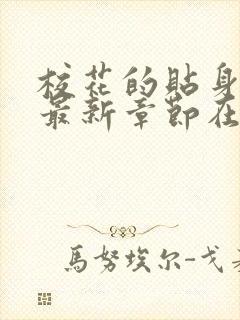 校花的贴身
最新章节在
馬努埃尔-戈